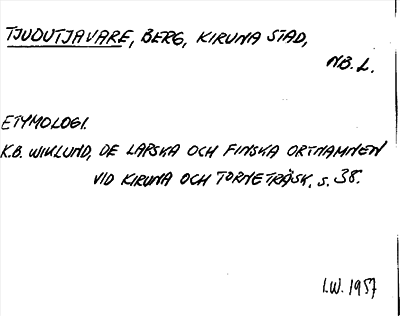 TJUOUTJAVARE, BERG, KIRUNA STAD,
NB. L.
ETYMOLOGI.
K.B. WIKLUND, DE LAPSKA OCH FINSKA ORTNAMNEN
VID KIRUNA OCH TORNETRÄSK, S. 38.
I.W. 1957